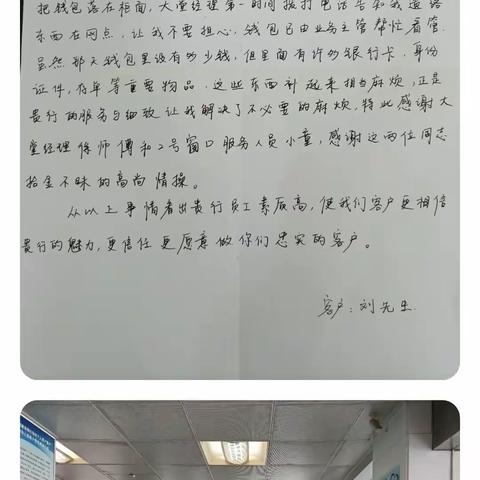 把钱包落在柜面,大堂经理第一时间拨打电话告知我遗落
东西在网点,让我不要担心,钱包已由业务主管帮忙看管.
虽然那天钱包里没有多少钱,但里面有许多银行卡、身份
证件,存单等重要物品.这些东西补起来相当麻烦,正是
贵行的服务与细致让我解决了不必要的麻烦,特此感谢大
堂经理徐师傅和2号窗口服务人员小童,感谢这两位同志
拾金不昧的高尚情操。
从以上事情看出贵行员工素质高,使我们客户更相信
贵行的魅力,更信任更愿意做你们忠实的客户。
客户:刘先生